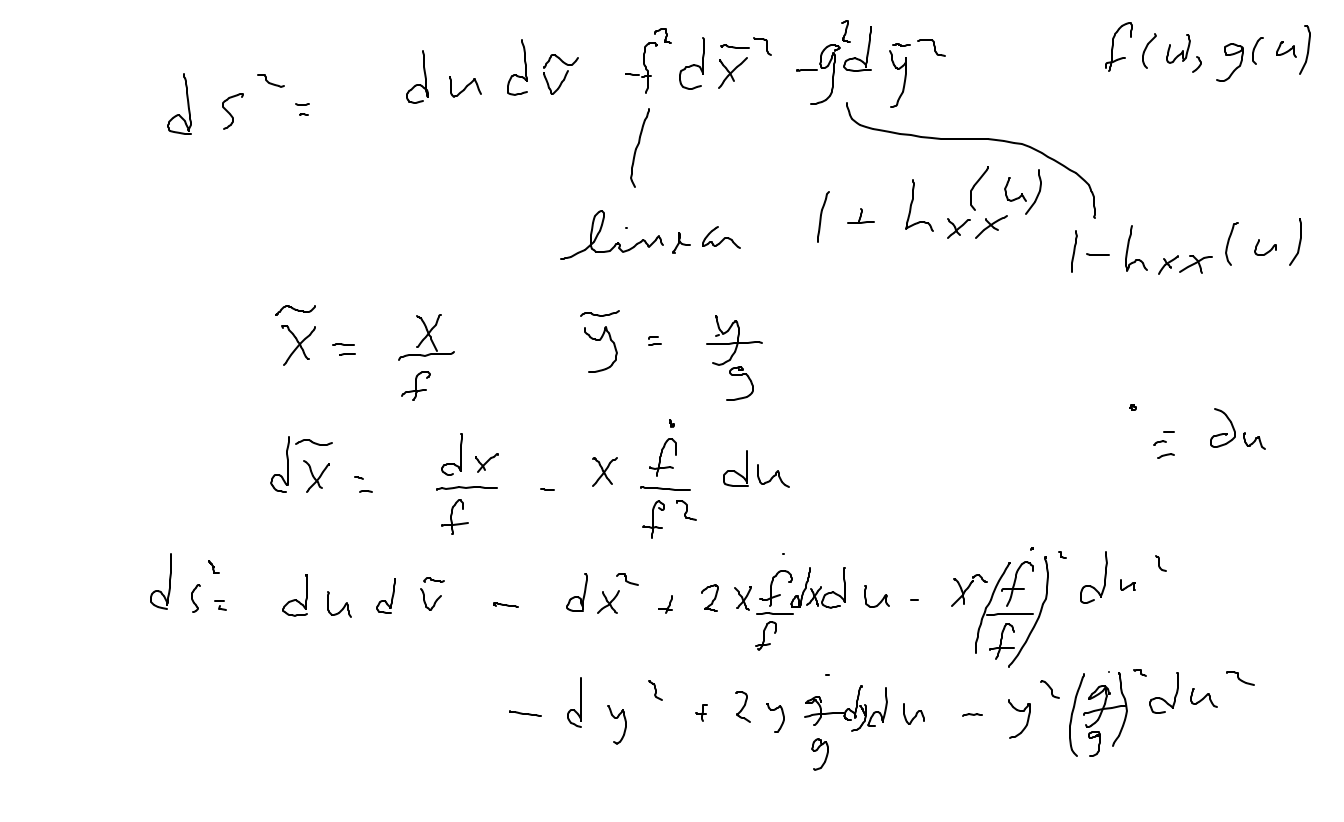 ds² = du dṽ - f² dx̃² - g² dỹ² f(u), g(u)
linear 1 + hₓₓ(u) 1 - hₓₓ(u)
x̃ = x/f ỹ = y/g
dx̃ = dx/f - x ḟ/f² du ˙ ≡ ∂u
ds² = du dṽ - dx² + 2x ḟ/f dx du - x² (ḟ/f)² du²
- dy² + 2y ġ/g dy du - y² (ġ/g)² du²